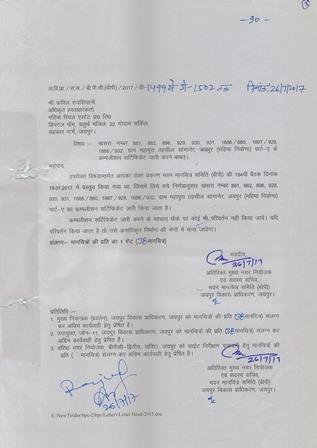 -90-
ज.वि.प्रा./ स.स./ बी.पी.सी.(बीपी) / 2017 / डी-1499 से डी-1502 तक दिनांक, 26/7/2017
श्री कपिल
अधिकृत हस्ताक्षरकर्ता,
महिमा रियल एस्टेट प्रा0 लि0
क्रिस्टल पॉम, चतुर्थ मंजिल, 22 गोदाम सर्किल,
सहकार मार्ग, जयपुर।
विषय:- खसरा नम्बर 881, 882, 896, 929, 930, 931, 1886/880, 1887/928,
1888/932, ग्राम महापुरा तहसील सांगानेर (महिमा निर्वाणा) पार्ट-ए के
कम्पलीशन सर्टिफिकेट जारी करने बाबत्।
महोदय,
उपरोक्त विषयान्तर्गत आपका उक्त प्रकरण भवन मानचित्र समिति (बीपी) की 194वीं बैठक दिनांक
19.07.2017 में प्रस्तुत किया गया था, जिसमें लिये गये निर्णयानुसार खसरा नम्बर 881, 882, 896, 929,
930, 931, 1886/880, 1887/928, 1888/932, ग्राम महापुरा तहसील सांगानेर, (महिमा निर्वाणा)
पार्ट-ए का कम्पलीशन सर्टिफिकेट जारी किया जाता है।
कम्पलीशन सर्टिफिकेट जारी करने के पश्चात् मौके पर कोई भी परिवर्तन नहीं किया जावें। यदि
परिवर्तन किया जाता है तो उसे अनाधिकृत निर्माण की श्रेणी में माना जावेगा।
संलग्नः- मानचित्रों की प्रति का 1 सेट (38 मानचित्र)
भवदीय
26/7/17
अतिरिक्त मुख्य नगर नियोजक
एवं सदस्य सचिव,
भवन मानचित्र समिति (बीपी)
जयपुर विकास प्राधिकरण, जयपुर।
प्रतिलिपि:-
1. मुख्य नियन्त्रक (प्रवर्तन), जयपुर विकास प्राधिकरण, जयपुर को मानचित्रों की प्रति (38 मानचित्र) संलग्न
कर अग्रिम कार्यवाही हेतु प्रेषित है।
2. उपायुक्त, जोन-11, जयपुर विकास प्राधिकरण, जयपुर को मानचित्रों की प्रति (38 मानचित्र) संलग्न कर
अग्रिम कार्यवाही हेतु प्रेषित है।
3. वरिष्ठ नगर नियोजक, जयपुर को मानचित्रों की
प्रति ( मानचित्र) संलग्न कर अग्रिम कार्यवाही हेतु प्रेषित है।
26/7/17
अतिरिक्त मुख्य नगर नियोजक
एवं सदस्य सचिव,
भवन मानचित्र समिति (बीपी)
जयपुर विकास प्राधिकरण, जयपुर
26/7
E:\New Folder\bpc-2\bpc\Letters\Letter Head-2015.doc